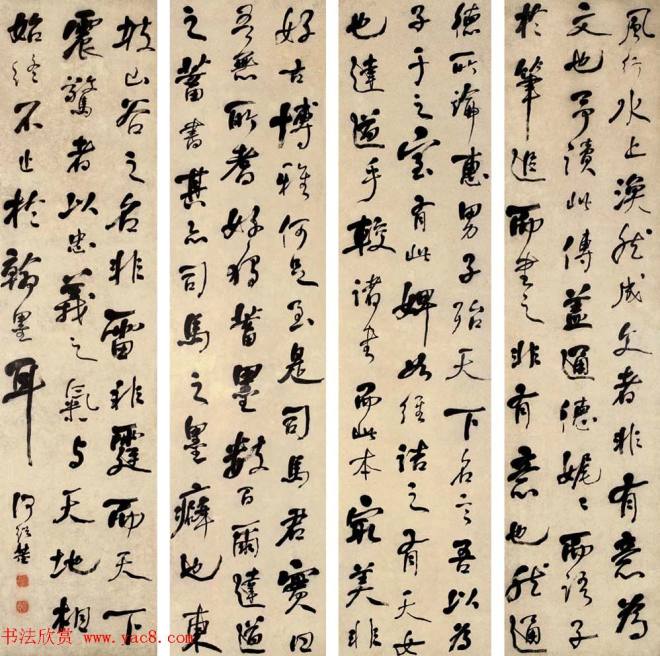 風行水上渙然成文者非有意為
文也予讀此傳蓋通德娓娓而語子
於筆追而書之非有意也然通
德所論惠男子殆天下名言吾以為
子于之室有此婢如維詰之有天女
也達道手較諸書而此本最美非
好古博雅何足至是司馬君實曰
吾無所耆好獨蓄墨數百爾達道
之蓄書其亦司馬之墨癖也東
坡山谷之名非雷非霆而天下
震驚者以忠義之氣与天地相
始終不止於翰墨耳 何紹基
书法欣赏 www.yac8.com